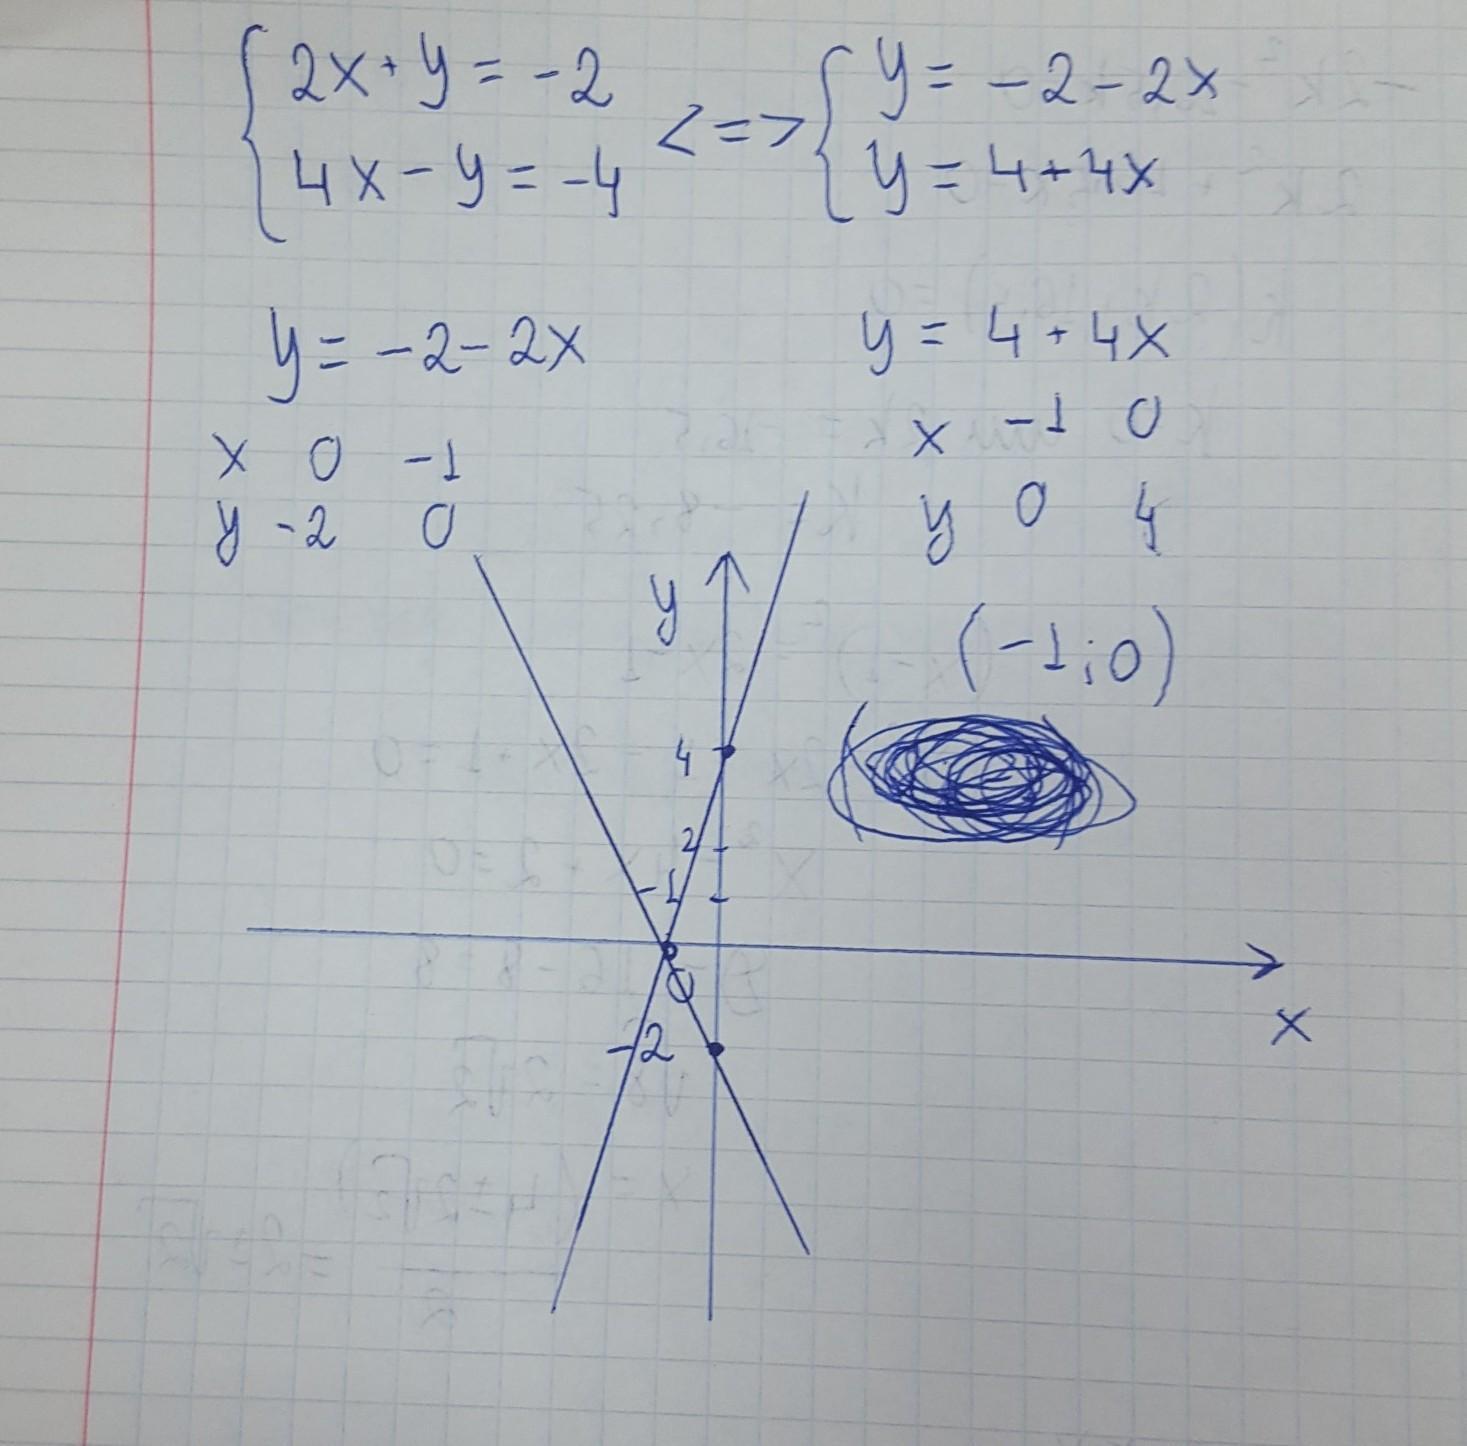 { 2x + y = -2 <=> { y = -2 - 2x
4x - y = -4 y = 4 + 4x
y = -2 - 2x
x 0 -1
y -2 0
y = 4 + 4x
x -1 0
y 0 4
(-1; 0)
y
4
2
-1
0
-2
x